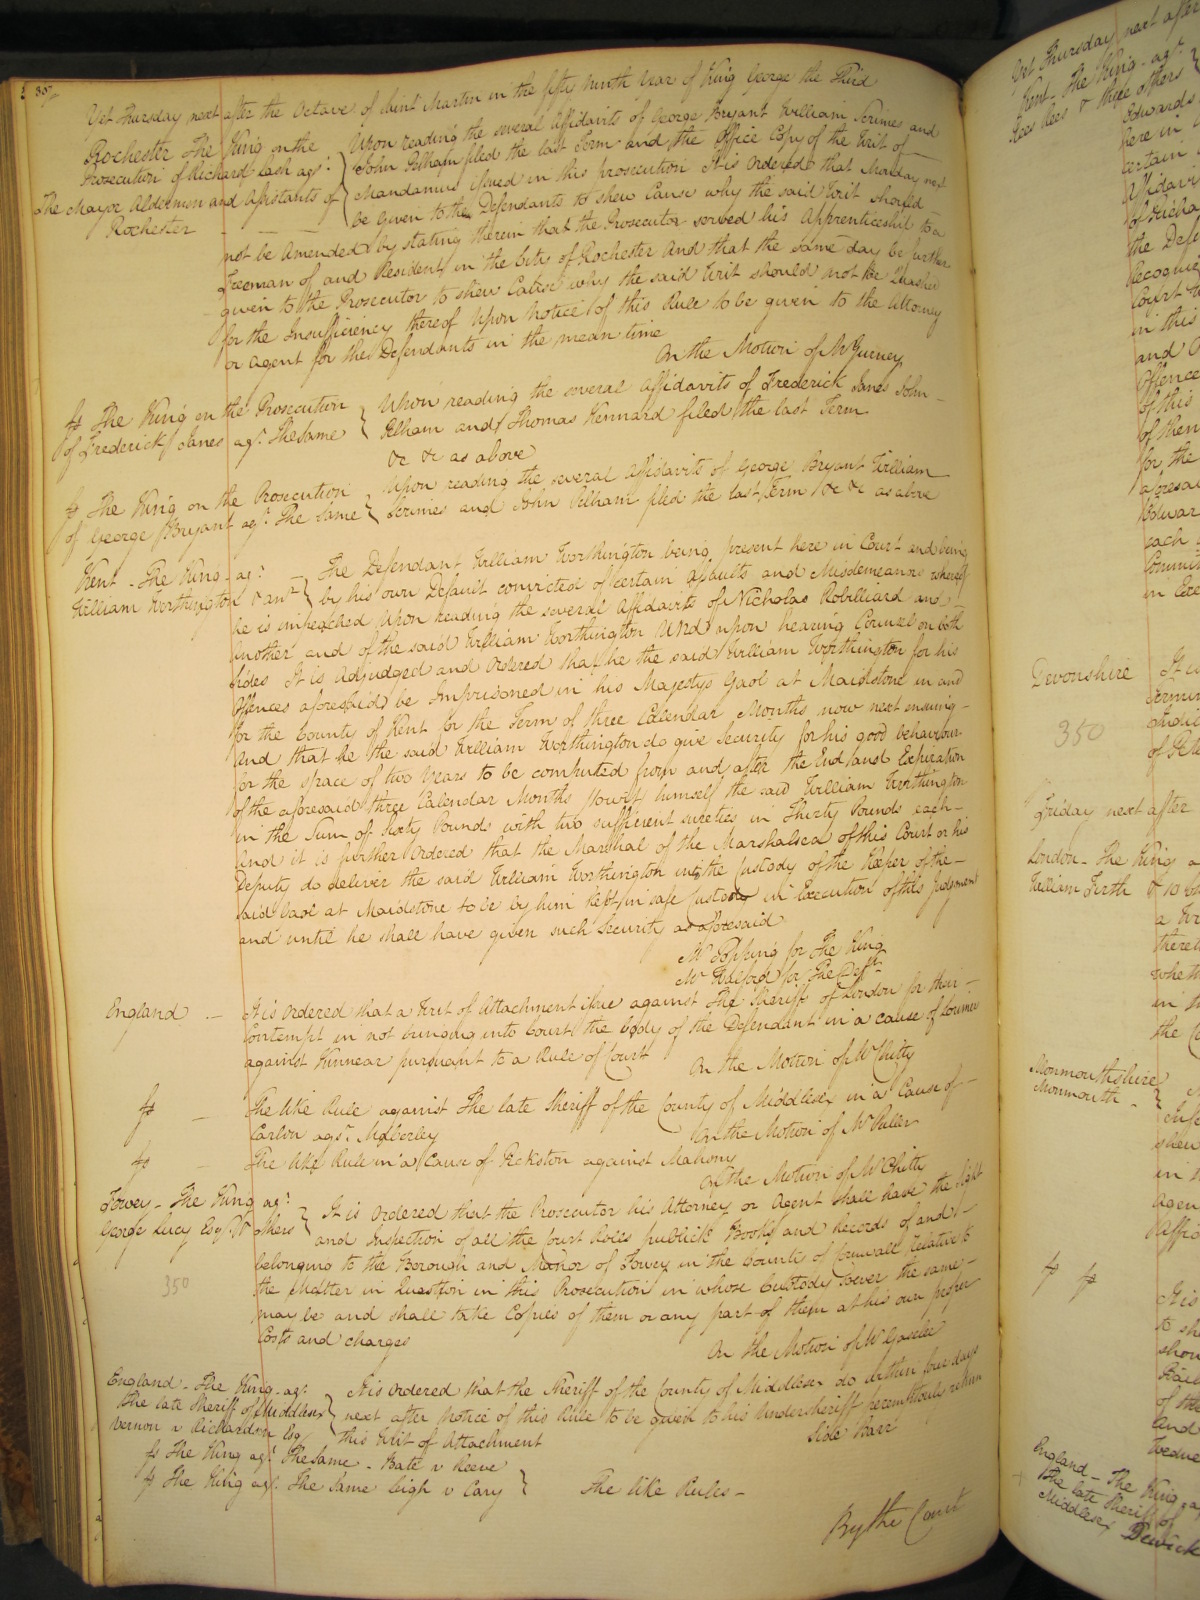 Yet Thursday next after the Octave of Saint Martin in the fifty ninth Year of King George the Third
Rochester The King on the
Prosecution of Richard Cash agt.
The Mayor Aldermen and Assistants of
Rochester
Upon reading the several Affidavits of George Bryant William Scrimes and
John Pelham filed the last Term and the Office Copy of the Writ of
Mandamus issued in this prosecution It is ordered that Monday next
be given to the Defendants to shew Cause why the said Writ should
not be Amended by stating therein that the Prosecutor served his Apprenticeship to a
Freeman of and Resident in the City of Rochester And that the same day be further
given to the Prosecutor to shew Cause why the said Writ should not be Quashed
for the Insufficiency thereof Upon Notice of this Rule to be given to the Attorney
or Agent for the Defendants in the mean time
On the Motion of Mr Gurney
The King on the Prosecution
of Frederick Janes agt. The Same
Upon reading the several Affidavits of Frederick Janes John
Pelham and Thomas Kennard filed the last Term
&c &c as above
The King on the Prosecution
of George Bryant agt. The Same
Upon reading the several Affidavits of George Bryant William
Scrimes and John Pelham filed the last Term &c &c as above
Kent - The King agt.
William Worthington & anr
The Defendant William Worthington being present here in Court and being
by his own Default convicted of certain Assaults and Misdemeanors whereof
he is impeached Upon reading the several Affidavits of Nicholas Robilliard and
another and of the said William Worthington And upon hearing Counsel on both
sides It is adjudged and ordered that he the said William Worthington for his
Offences aforesaid be Imprisoned in his Majestys Gaol at Maidstone in and
for the County of Kent for the Term of three Calendar Months now next ensuing
And that he the said William Worthington do give Security for his good behaviour
for the space of two Years to be computed from and after the End and Expiration
of the aforesaid three Calendar Months to wit himself the said William Worthington
in the Sum of Sixty Pounds with two sufficient sureties in Thirty Pounds each
And it is further Ordered that the Marshal of the Marshalsea of this Court or his
Deputy do deliver the said William Worthington into the Custody of the Keeper of the
said Gaol at Maidstone to be by him kept in safe Custody in Execution of this Judgment
and until he shall have given such Security as aforesaid
Mr Topping for The King
Mr Walford for The Deft.
England - It is Ordered that a Writ of Attachment issue against The Sheriff of London for their
Contempt in not bringing into Court the body of the Defendant in a cause of Lorimer
against Kinnear pursuant to a Rule of Court
On the Motion of Mr Chitty
The like Rule against The late Sheriff of the County of Middlesex in a Cause of
Carlon agst. Moberley
On the Motion of Mr Puller
The like Rule in a Cause of Pickston against Mahony
On the Motion of Mr Chitty
Fowey - The King agt.
George Lucy Esqr. & others
It is Ordered that the Prosecutor his Attorney or Agent shall have the Sight
and Inspection of all the Court Rolls publick Books and Records of and
belonging to the Borough and Manor of Fowey in the County of Cornwall Relative to
the Matter in Question in this Prosecution in whose Custody soever the same
may be and shall take Copies of them or any part of them at his own proper
Costs and charges
350
On the Motion of Mr Gaselee
England - The King agt.
The late Sheriff of Middlesex
Vernon v Richardson Esq
It is Ordered that the Sheriff of the County of Middlesex do within four days
next after Notice of this Rule to be given to his Undersheriff peremptorily return
this Writ of Attachment
Side Barr
The King agt. The Same - Bate v Reeve
The King agt. The Same Leigh v Cary
The like Rules -
By the Court
Yet Thursday next after
Kent - The King agt.
Lees & three others
Edwards
here in
certain
Affidavi
of Richa
the Defe
Recogni
Court
in this
and
Offence
of this
of them
for the
aforesai
Edwar
each
Commi
in Exe
Devonshire
It is
350
Friday next after
London - The King a
William Firth & 10
a Wr
there
whet
in
the
Monmouthshire
Monmouth -
shew
in
Agen
Affid
It is
to sh
shou
of the
and
England - The King a
The late Sheriff of
Middlesex